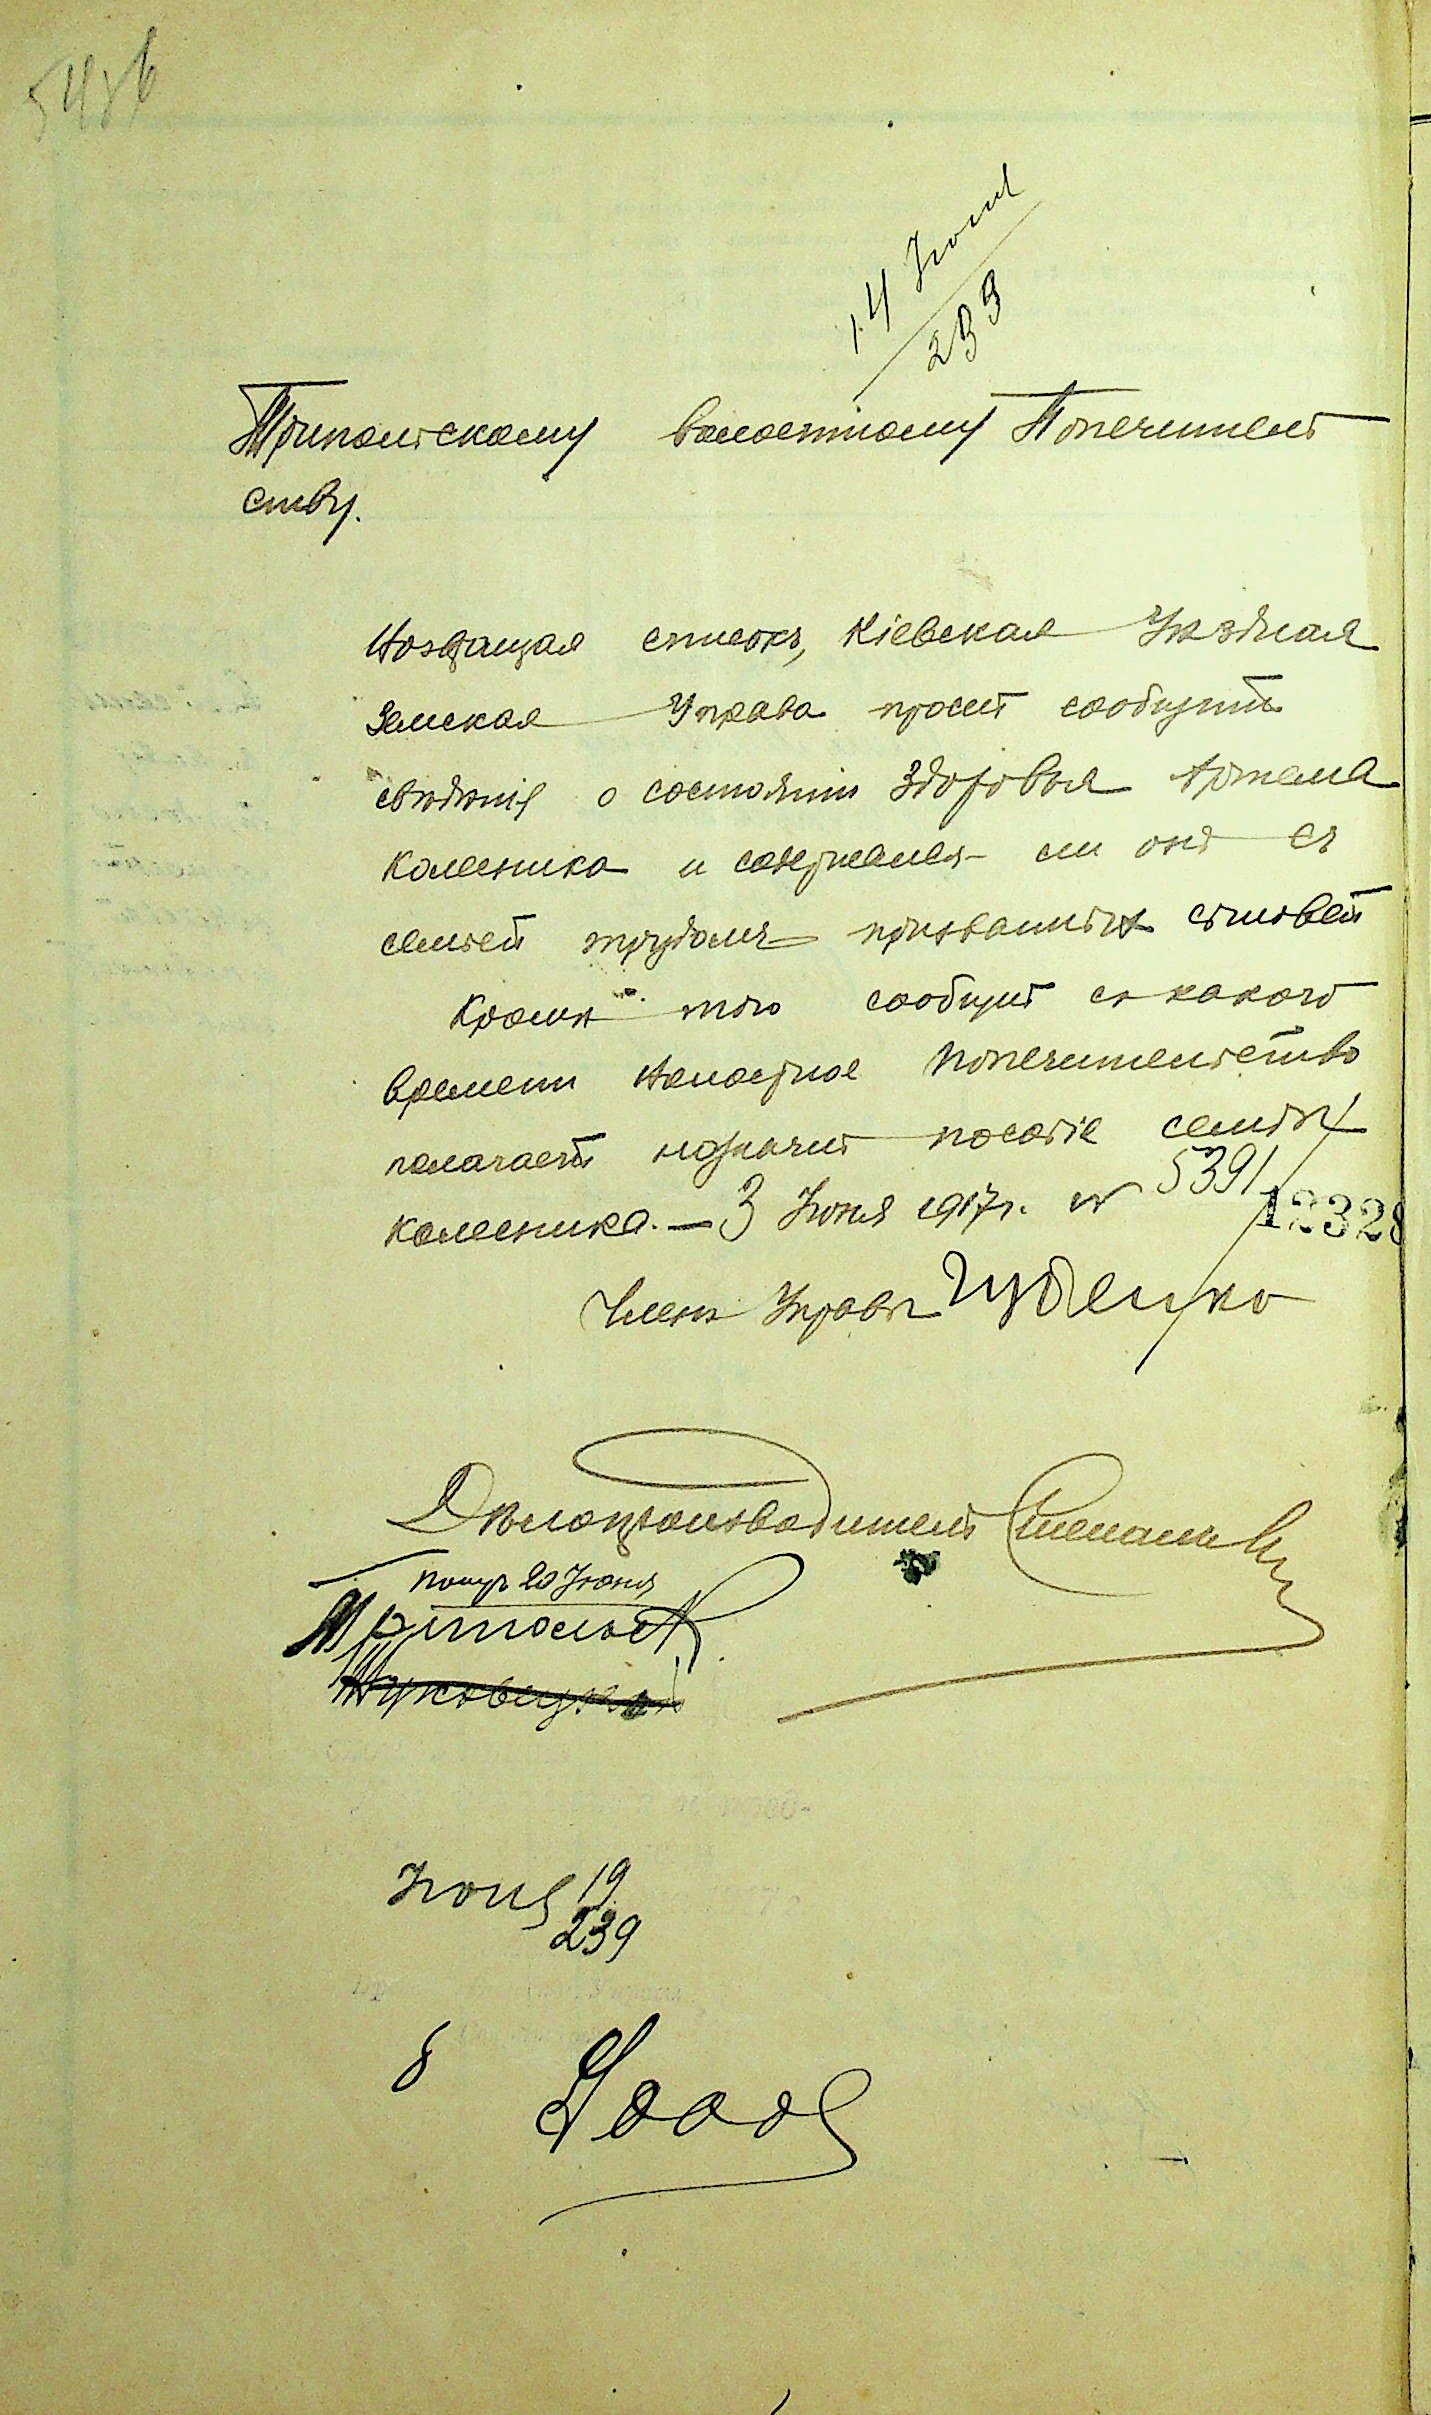 14 Июня
233
Трипольскому волостному Попечитель
ству.
Возвращая списокъ, Кіевская Уѣздная
Земская Управа проситъ сообщить
свѣдѣнія о состояніи здоровья Артема
Колесника и содержался ли онъ съ
семьей трудомъ призванныхъ сыновей
Кромѣ того сообщить съ какого
времени волостное Попечительство
полагаетъ назначить пособіе семьѣ
Колесника. — 3 Іюня 1917г. № 5391/12328
Членъ Управы Гуденко
Дѣлопроизводитель
Получ 20 Іюня
Триполье
Жуковцы
Іюня 19
239